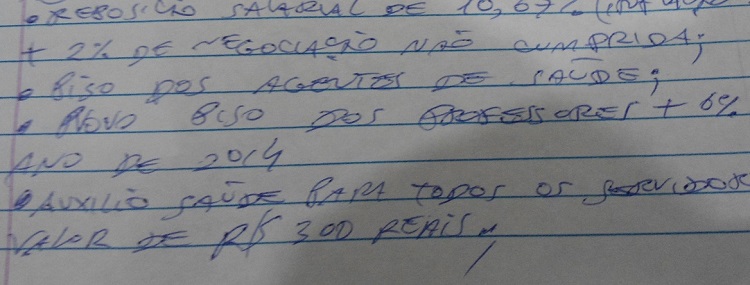 • REPOSICÃO SALARIAL DE 10,67% (INFLAÇÃO
+ 2% DE NEGOCIAÇÃO NÃO CUMPRIDA;
• PISO DOS AGENTES DE SAÚDE;
• NOVO PISO DOS PROFESSORES + 6%
ANO DE 2014
• AUXILIO SAÚDE PARA TODOS OS SERVIDORES
VALOR DE R$ 300 REAIS